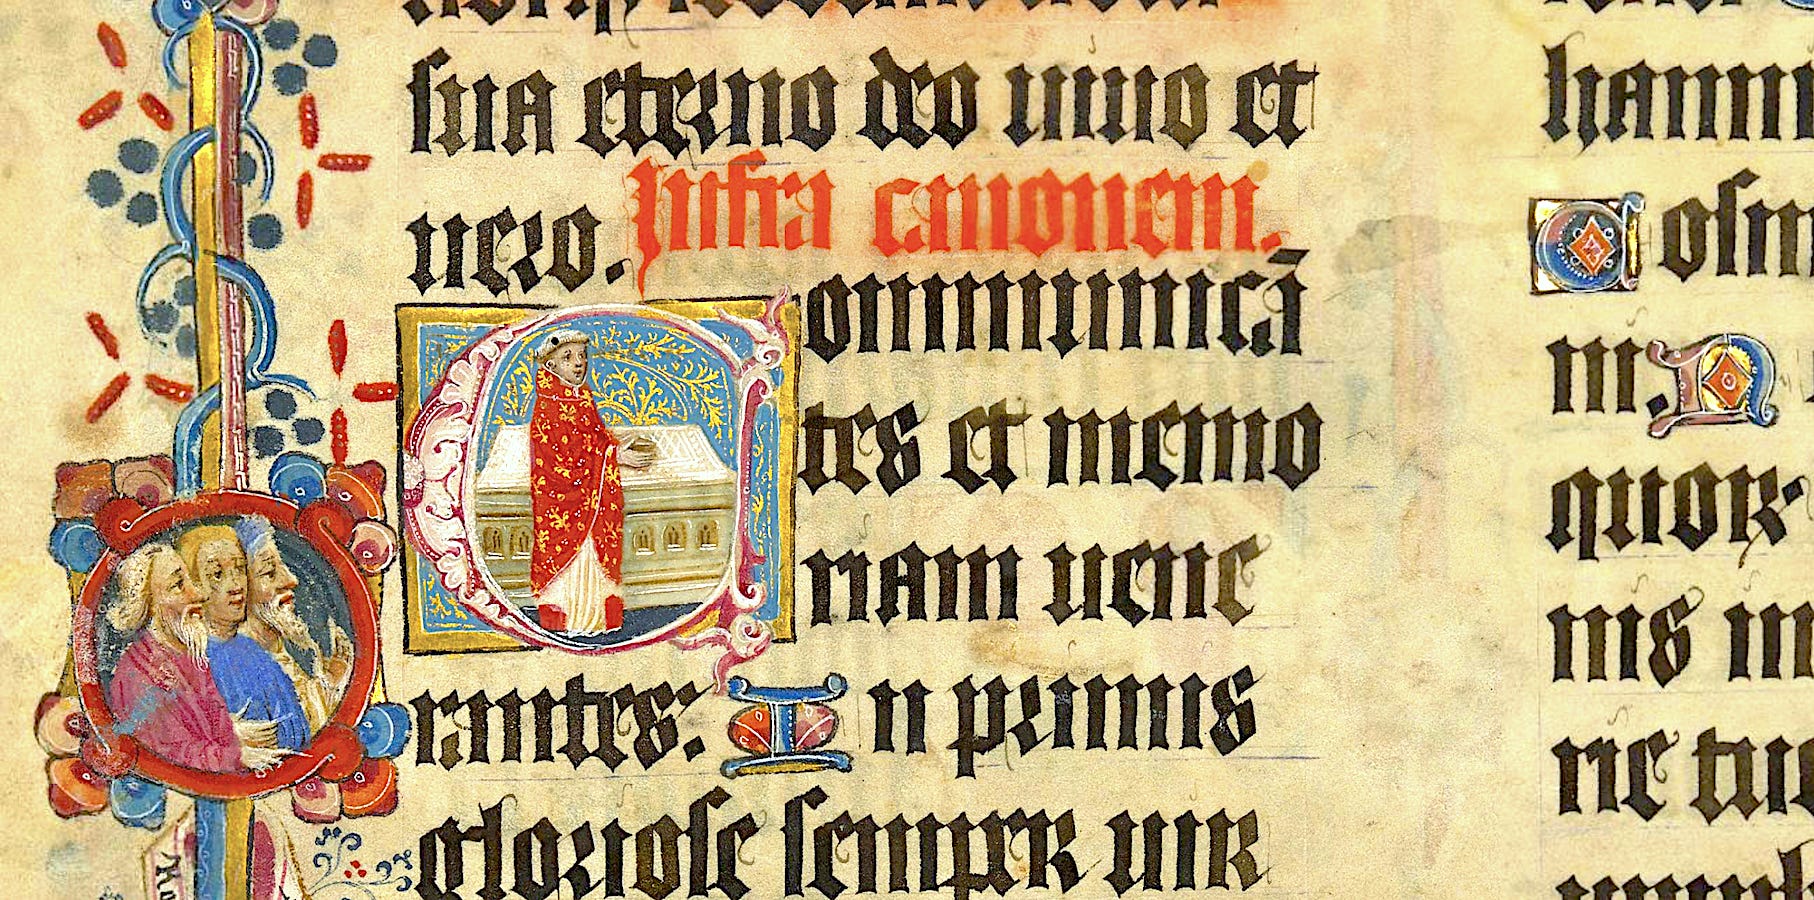 sua eterno deo uiuo et
uero. Infra canonem.
Communicā
tes et memo
riam uene
rantes: In primis
gloriose semper uir
osm
m. N
quor
nis in
rie tue